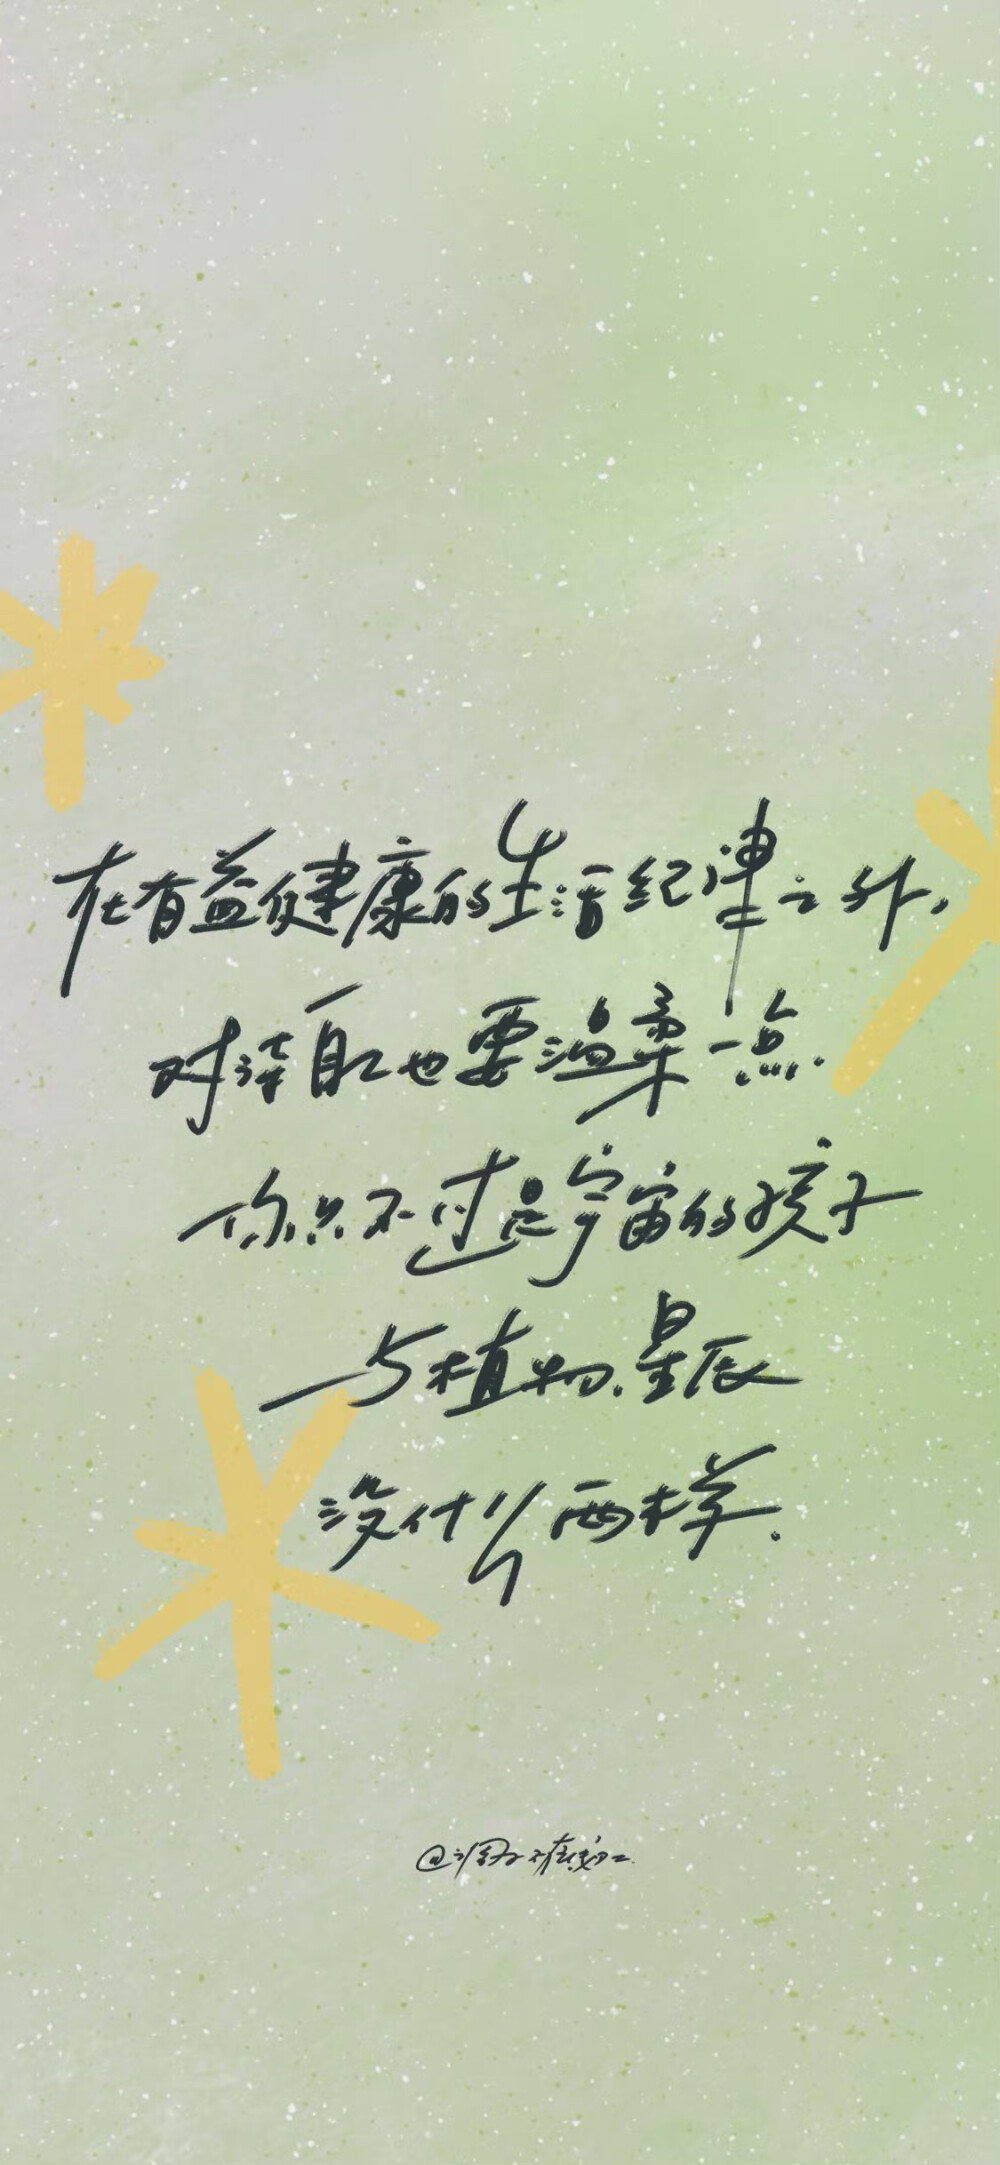 在有益健康的生活纪律之外，
对待自己也要温柔一点.
你只不过是宇宙的孩子
与植物、星辰
没什么两样.